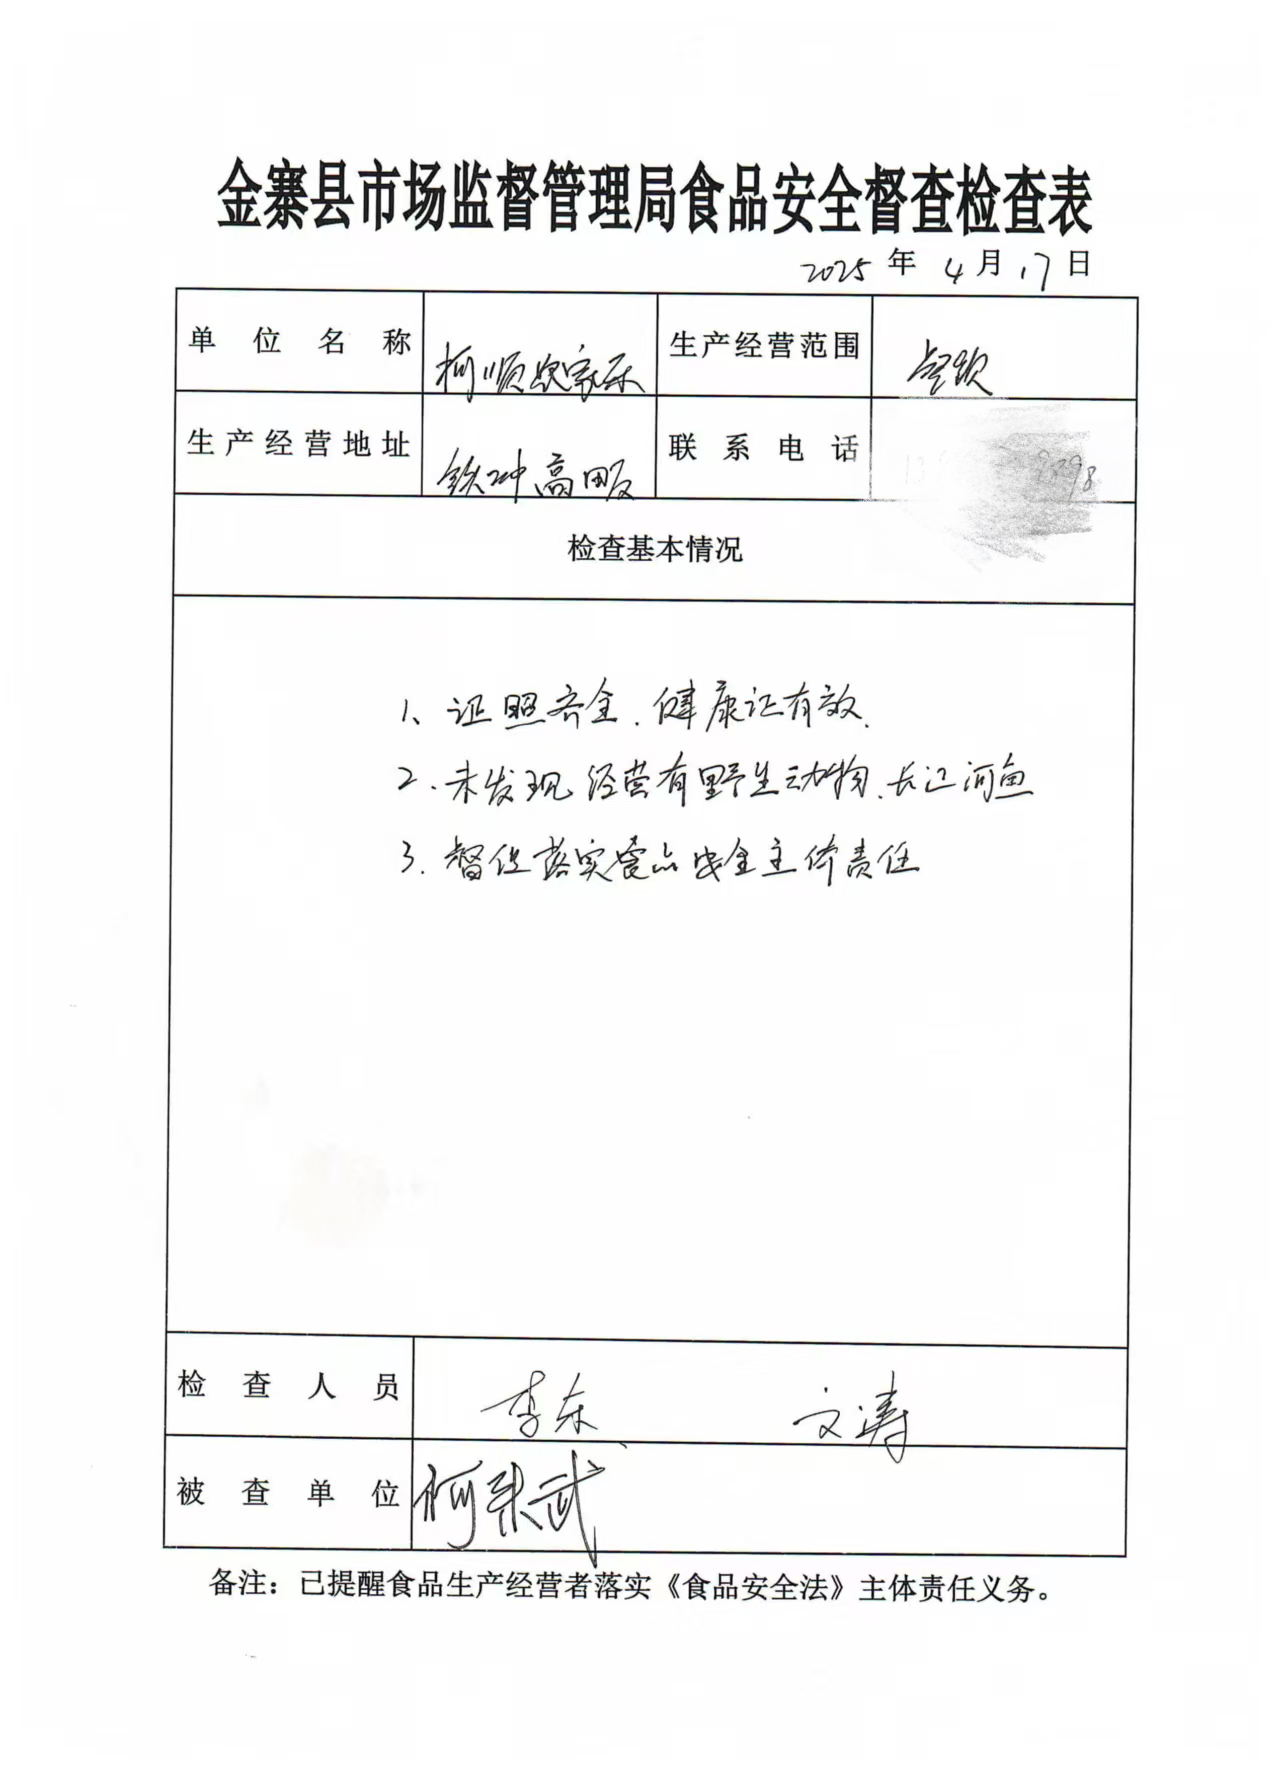 金寨县市场监督管理局食品安全督查检查表
2025年4月17日
单位名称 柯顺农家乐 生产经营范围 餐饮
生产经营地址 铁冲高畈 联系电话
检查基本情况
1、证照齐全、健康证有效.
2.未发现经营有野生动物、长江河鱼
3.督促落实食品安全主体责任
检查人员 李东 文涛
被查单位 柯 武
备注：已提醒食品生产经营者落实《食品安全法》主体责任义务。